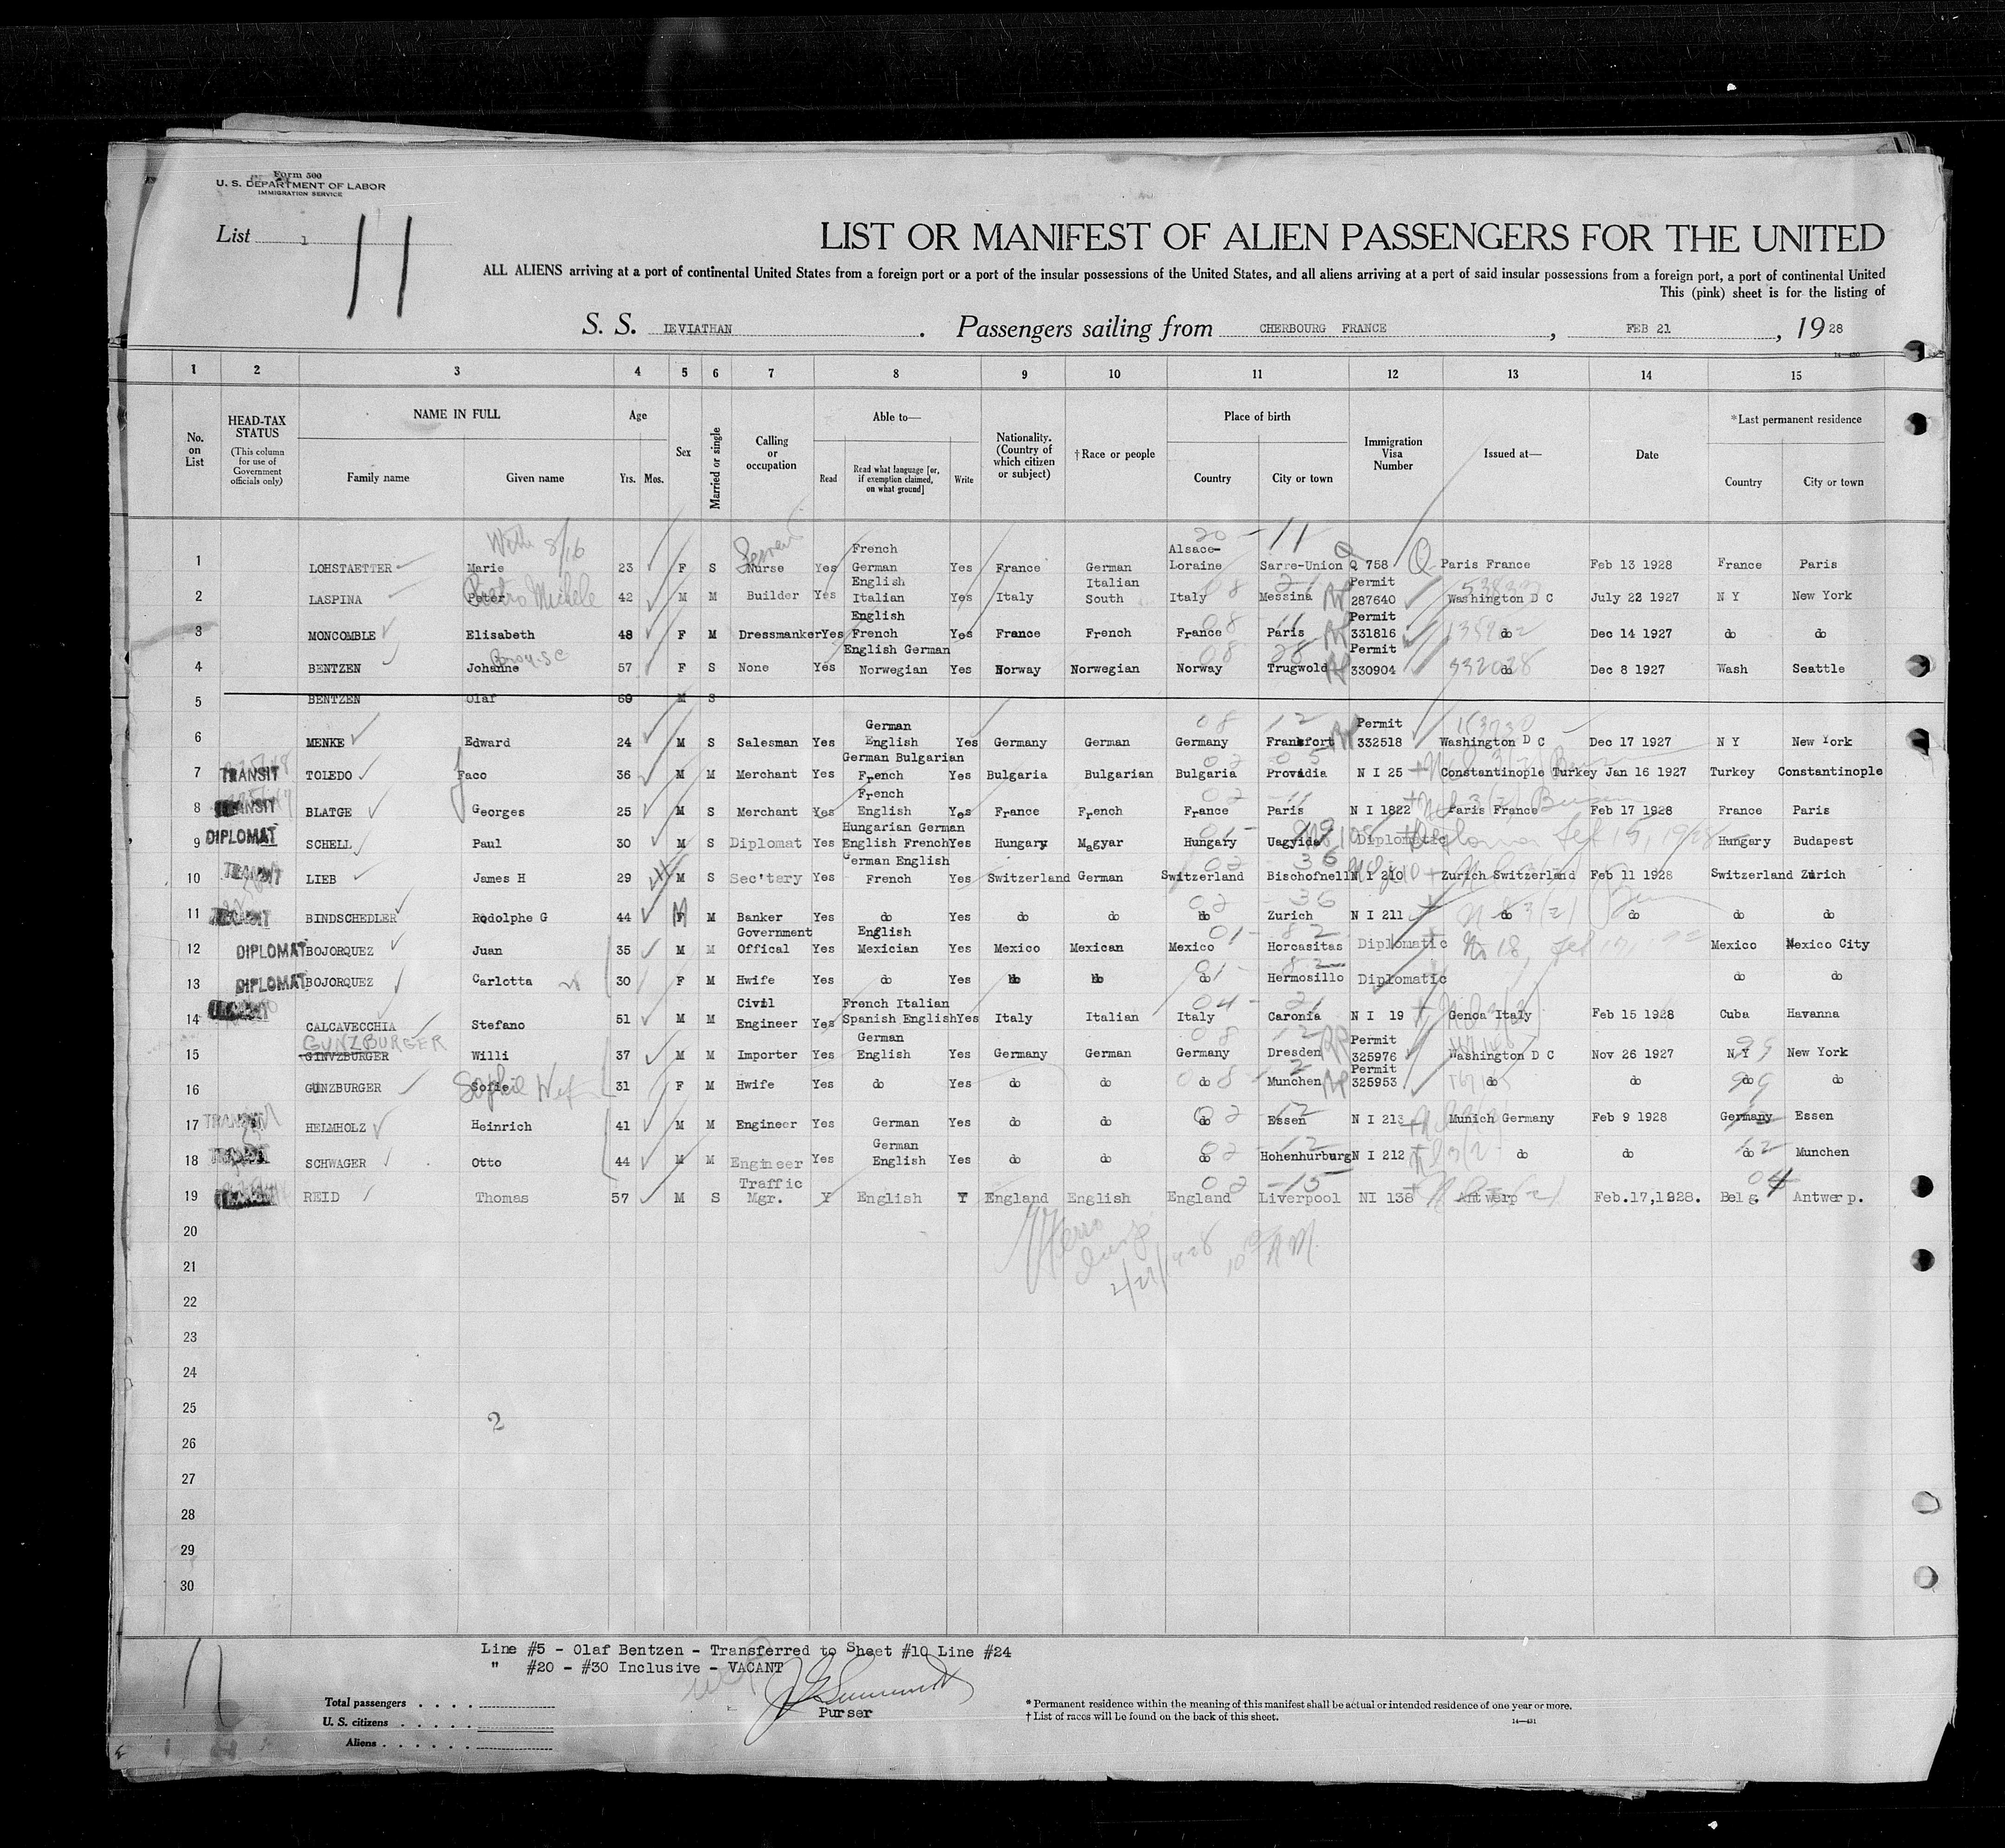 Form 500
U. S. DEPARTMENT OF LABOR
IMMIGRATION SERVICE
List 1
11
LIST OR MANIFEST OF ALIEN PASSENGERS FOR THE UNITED
ALL ALIENS arriving at a port of continental United States from a foreign port or a port of the insular possessions of the United States, and all aliens arriving at a port of said insular possessions from a foreign port, a port of continental United
This (pink) sheet is for the listing of
S. S. LEVIATHAN. Passengers sailing from CHERBOURG FRANCE, FEB 21, 1928
14—430
1 2 3 4 5 6 7 8 9 10 11 12 13 14 15
No. on List
HEAD-TAX STATUS
(This column for use of Government officials only)
NAME IN FULL
Family name Given name
Age
Yrs. Mos.
Sex
Married or single
Calling or occupation
Able to—
Read Read what language [or, if exemption claimed, on what ground] Write
Nationality. (Country of which citizen or subject)
†Race or people
Place of birth
Country City or town
Immigration Visa Number
Issued at—
Date
*Last permanent residence
Country City or town
With 8/16 20 - 11
1 LOHSTAETTER Marie 23 F S Nurse Yes French German Yes France German Alsace-Loraine Sarre-Union Q 758 Paris France Feb 13 1928 France Paris
2 LASPINA Peter Pietro Michele 42 M M Builder Yes English Italian Yes Italy Italian South Italy Messina Permit 287640 Washington D C July 22 1927 N Y New York
3 MONCOMBLE Elisabeth 48 F M Dressmanker Yes English French Yes France French France Paris Permit 331816 do Dec 14 1927 do do
4 BENTZEN Johanne 57 F S None Yes English German Norwegian Yes Norway Norwegian Norway Trugwold Permit 330904 do Dec 8 1927 Wash Seattle
5 BENTZEN Olaf 60 M S
6 MENKE Edward 24 M S Salesman Yes German English Yes Germany German Germany Frankfort Permit 332518 Washington D C Dec 17 1927 N Y New York
7 TRANSIT TOLEDO Jaco 36 M M Merchant Yes German Bulgarian French Yes Bulgaria Bulgarian Bulgaria Provadia N I 25 Constantinople Turkey Jan 16 1927 Turkey Constantinople
8 TRANSIT BLATGE Georges 25 M S Merchant Yes French English Yes France French France Paris N I 1822 Paris France Feb 17 1928 France Paris
9 DIPLOMAT SCHELL Paul 30 M S Diplomat Yes Hungarian German English French Yes Hungary Magyar Hungary Diplomatic Hungary Budapest
10 TRANSIT LIEB James H 29 M S Sec'tary Yes German English French Yes Switzerland German Switzerland Bischofnell N I 210 Zurich Switzerland Feb 11 1928 Switzerland Zurich
11 TRANSIT BINDSCHEDLER Rodolphe G 44 M M Banker Yes do Yes do do do Zurich N I 211 do do do do
12 DIPLOMAT BOJORQUEZ Juan 35 M M Government Offical Yes English Mexician Yes Mexico Mexican Mexico Horcasitas Diplomatic Mexico Mexico City
13 DIPLOMAT BOJORQUEZ Carlotta 30 F M Hwife Yes do Yes do do do Hermosillo Diplomatic do do
14 CALCAVECCHIA Stefano 51 M M Civil Engineer Yes French Italian Spanish English Yes Italy Italian Italy Caronia N I 19 Genoa Italy Feb 15 1928 Cuba Havanna
GUNZBURGER
15 GINVZBURGER Willi 37 M M Importer Yes German English Yes Germany German Germany Dresden Permit 325976 Washington D C Nov 26 1927 N Y New York
16 GUNZBURGER Sofie Sophie 31 F M Hwife Yes do Yes do do do Munchen Permit 325953 do do do do
17 TRANSIT HELMHOLZ Heinrich 41 M M Engineer Yes German Yes do do do Essen N I 213 Munich Germany Feb 9 1928 Germany Essen
18 TRANSIT SCHWAGER Otto 44 M M Engineer Yes German English Yes do do do Hohenhurburg N I 212 do do do Munchen
19 REID Thomas 57 M S Traffic Mgr. Y English Y England English England Liverpool NI 138 Antwerp Feb.17,1928. Belg. Antwerp.
20
21
22
23
24
25
2
26
27
28
29
30
11
Line #5 - Olaf Bentzen - Transferred to Sheet #10 Line #24
" #20 - #30 Inclusive - VACANT
Purser
Total passengers
U. S. citizens
Aliens
* Permanent residence within the meaning of this manifest shall be actual or intended residence of one year or more.
† List of races will be found on the back of this sheet.
14—431